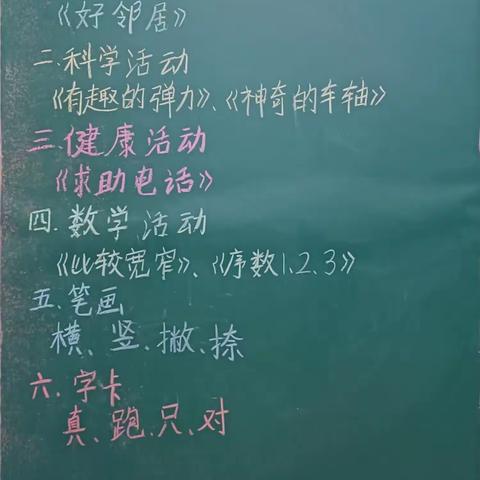 《好邻居》
二.科学活动
《有趣的弹力》、《神奇的车轴》
三.健康活动
《求助电话》
四.数学活动
《比较宽窄》、《序数1.2.3》
五.笔画
横、竖、撇、捺
六.字卡
真、跑、只、对